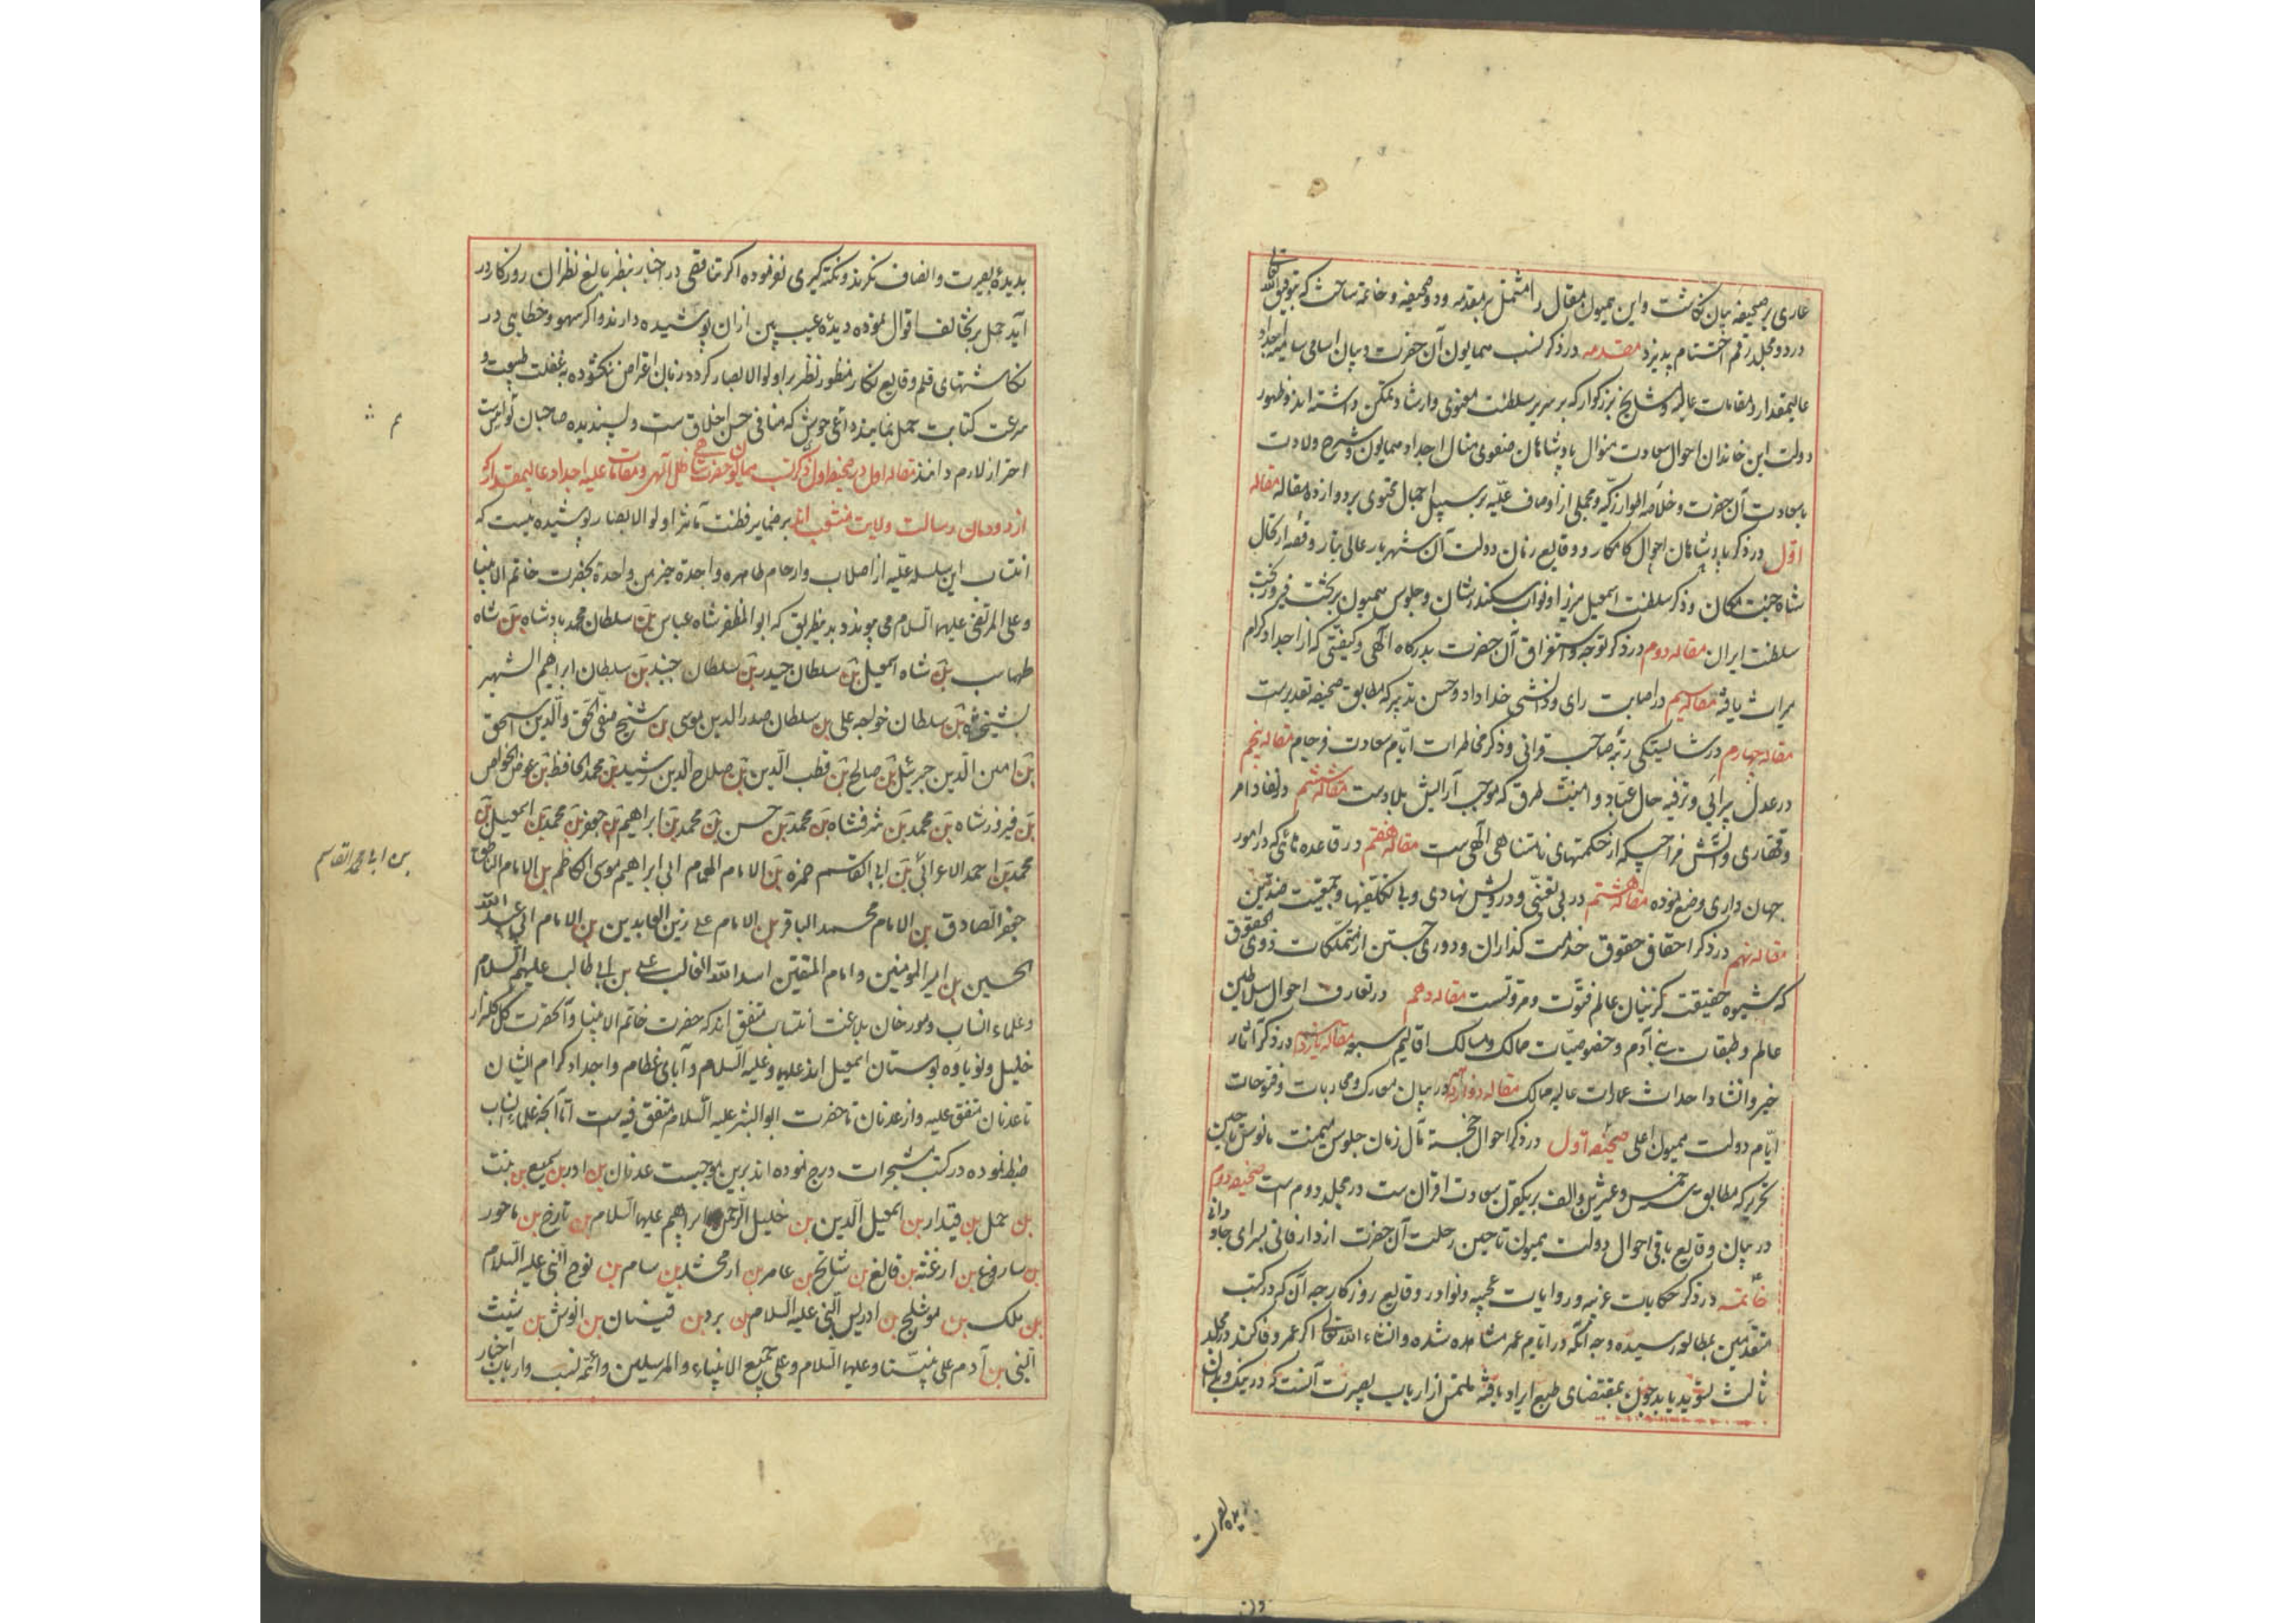 عاری بر صحیفهٔ بیان نگاشت و این همیون مقال را مشتمل بر مقدمه و دو صحیفه و خاتمه ساخت که بتوفیق الله تعالی
در دو مجلد رقم اختتام پذیرد مقدمه در ذکر نسب همایون آن حضرت و بیان اسامی سامیه اجداد
عالیمقدار و مقامات عالیه و مشایخ بزرکوار که بر سریر سلطنت معنوی و ارشاد تمکن داشته اند و ظهور
دولت این خاندان احوال سعادت منوال پادشاهان صفوی مثال اجداد همایون و شرح ولادت
با سعادت آن حضرت و خلاصه اطوار زکیه و مجملی از اوصاف علیه بر سبیل اجمال محتوی بر دوازده مقاله مقاله
اول در ذکر پادشاهان احوال کامکار و وقایع زمان دولت آن شهریار عالی تبار وقعه ارتحال
شاه جنت مکان و ذکر سلطنت اسمعیل میرزا و نواب سکندر شان و جلوس همیون بر تخت فیروز بخت
سلطنت ایران مقاله دوم در ذکر توجه و استغراق آن حضرت بدرکاه الهی و کیفیتی که از اجداد کرام
میراث یافته مقاله سیم در اصابت رای و دانشی خداداد و حسن تدبیر که مطابق صحیفه تقدیرست
مقاله چهارم در شایستکی رتبه صاحب قرانی و ذکر مخاطرات ایام سعادت فرجام مقاله پنجم
در عدل پیرائی و ترفیه حال عباد و امنیت طرق که موجب آرایش بلادست مقاله ششم در نفاد امر
و قهاری و آتش مزاجی که از حکمتهای نامتناهی الهی ست مقاله هفتم در قاعده دانی که در امور
جهان داری وضع نموده مقاله هشتم در بی تعینی و درویش نهادی و بی تکلیفها و جمعیت ضدین
مقاله نهم در ذکر احقاق حقوق خدمت کذاران و دوری جستن از متملکات ذوی الحقوق
که شیوه حقیقت کزینان عالم فتوت و مروتست مقاله دهم در تعارف احوال سلاطین
عالم و طبقات بنی آدم و خصوصیات ممالک و مسالک اقالیم سبعه مقاله یازدهم در ذکر آثار
خیر و انشاد احداث عمارات عالیه ممالک مقاله دوازدهم در بیان معارک و محاربات و فتوحات
ایام دولت همیون اعلی صحیفه اول در ذکر احوال خجسته مآل زمان جلوس میمنت مانوس تا حین
تحریر که مطابق خمس و عشرین و الف بریکقرن سعادت اقران ست در مجلد دوم است صحیفه دوم
در بیان وقایع باقی احوال دولت همیون تا حین رحلت آن حضرت از دار فانی بسرای جاودانی
خاتمه در ذکر حکایات غریبه و روایات عجیبه و نوادر وقایع روزکار چه آن که در کتب
متقدمین بمطالعه رسیده و چه آنکه در ایام عمر مشاهده شده و انشاء الله تعالی اکر عمر وفا کند در مجلد
ثالث بمقتضای طبع ایراد یافته ملتمس از ارباب بصیرت آنست که در نیک و بد آن
بدیده بصیرت
بدیدهٔ بصیرت و انصاف نکرند و نکته کیری نفرموده اکر تناقصی در اخبار بنظر بالغ نظران روزکار در
آید حمل بر تخالف اقوال نموده دیدهٔ عیب بین از ان پوشیده دارند و اکر سهو و خطایی در
نکاشتهای قلم وقایع نکار منظور نظر برا ولوالابصار کردد زبان اعتراض نکشوده به غفلت طبیعت و
سرعت کتابت حمل نمایند داغی حوش که منافی حسن اخلاق ست و پسندیده صاحبان
احتراز لازم دانند مقاله اول در صحیفه اول در ذکر نسب همایون حضرت شاهی ظل الهی و مقامات علیه اجداد عالیمقدار که
از دودمان رسالت ولایت منشعب اند بر ضمایر فطنت مآثر اولوالابصار پوشیده نیست که
انتساب این سلسله علیه از اصلاب و ارحام طاهره واحدة من واحدة بحضرت خاتم الانبیا
و علی المرتضی علیهما السلام می پیوندد بدینطریق که ابو المظفر شاه عباس بن سلطان محمد پادشاه بن شاه
طهماسب بن شاه اسمعیل بن سلطان حیدر بن سلطان جنید بن سلطان ابراهیم الشهیر
بشیخ شاه بن سلطان خواجه علی بن سلطان صدر الدین موسی بن شیخ صفی الحق والدین اسحق
بن امین الدین جبرئیل بن صالح بن قطب الدین بن صلاح الدین رشید بن محمد الحافظ بن عوض الخواص
بن فیروز شاه بن محمد بن شرفشاه بن محمد بن حسن بن محمد بن ابراهیم بن جعفر بن محمد بن اسمعیل بن
محمد بن احمد الاعرابی بن ابی القاسم حمزه بن الامام الهمام ابی ابراهیم موسی الکاظم بن الامام الناطق
جعفر الصادق بن الامام محمد الباقر بن الامام علی زین العابدین بن الامام ابی عبد الله
الحسین بن امیر المومنین و امام المتقین اسد الله الغالب علی بن ابی طالب علیهم السلام
و علماء انساب و مورخان بلاغت انتساب متفق اند که حضرت خاتم الانبیا و آنحضرت کل کلزار
خلیل و نوباوه بوستان اسمعیل اند علیهما و علیه السلام و آبای عظام و اجداد کرام ایشان
تا عدنان متفق علیه و از عدنان تا حضرت ابو البشر علیه السلام متفق فیه ست اما آنچه علماء انساب
ضبط نموده در کتب مشجرات درج نموده اند برین موجبست عدنان بن ادر بن یسع بن بنت
بن حمل بن قیدار بن اسمعیل الدین بن خلیل الرحمن ابراهیم علیهما السلام بن تارخ بن ناحور
بن ساروغ بن ارغنه بن فالغ بن شالخ بن عامر بن ارفخشد بن سام بن نوح النبی علیه السلام
بن ملک بن موشلخ بن ادریس النبی علیه السلام بن برد بن قینان بن انوش بن شیث
النبی بن آدم علی نبینا و علیهما السلام و علی جمیع الانبیاء والمرسلین و ائمه نسب و ارباب اخبار
بن ابا محمد القاسم